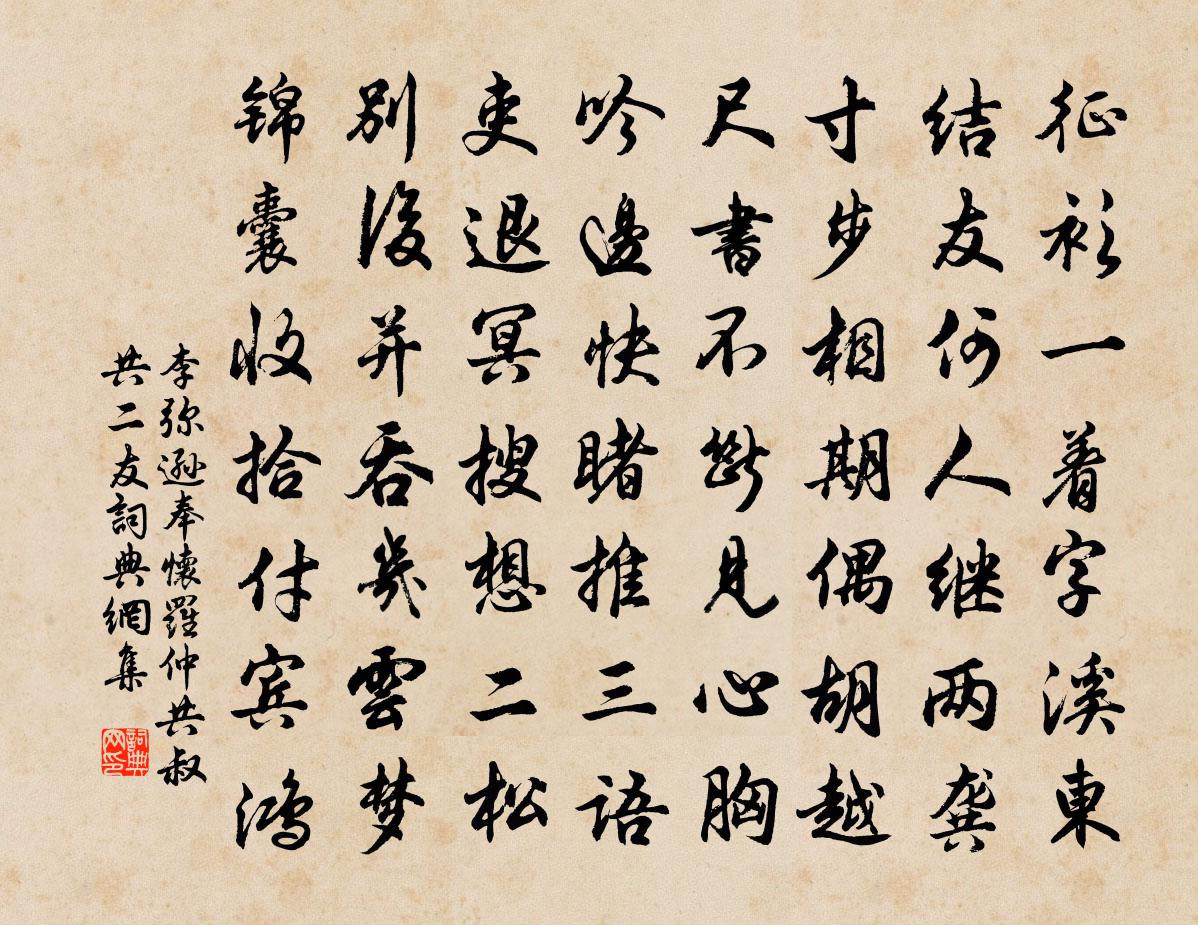 征衫一着字溪東
结友何人继两龚
寸步相期偶胡越
尺書不斷見心胸
吟邊快睹推三语
吏退冥搜想二松
别後并吞幾雲梦
锦囊收拾付宾鸿
李弥遜奉懷羅仲共叔
共二友詞典網集
詞典网印